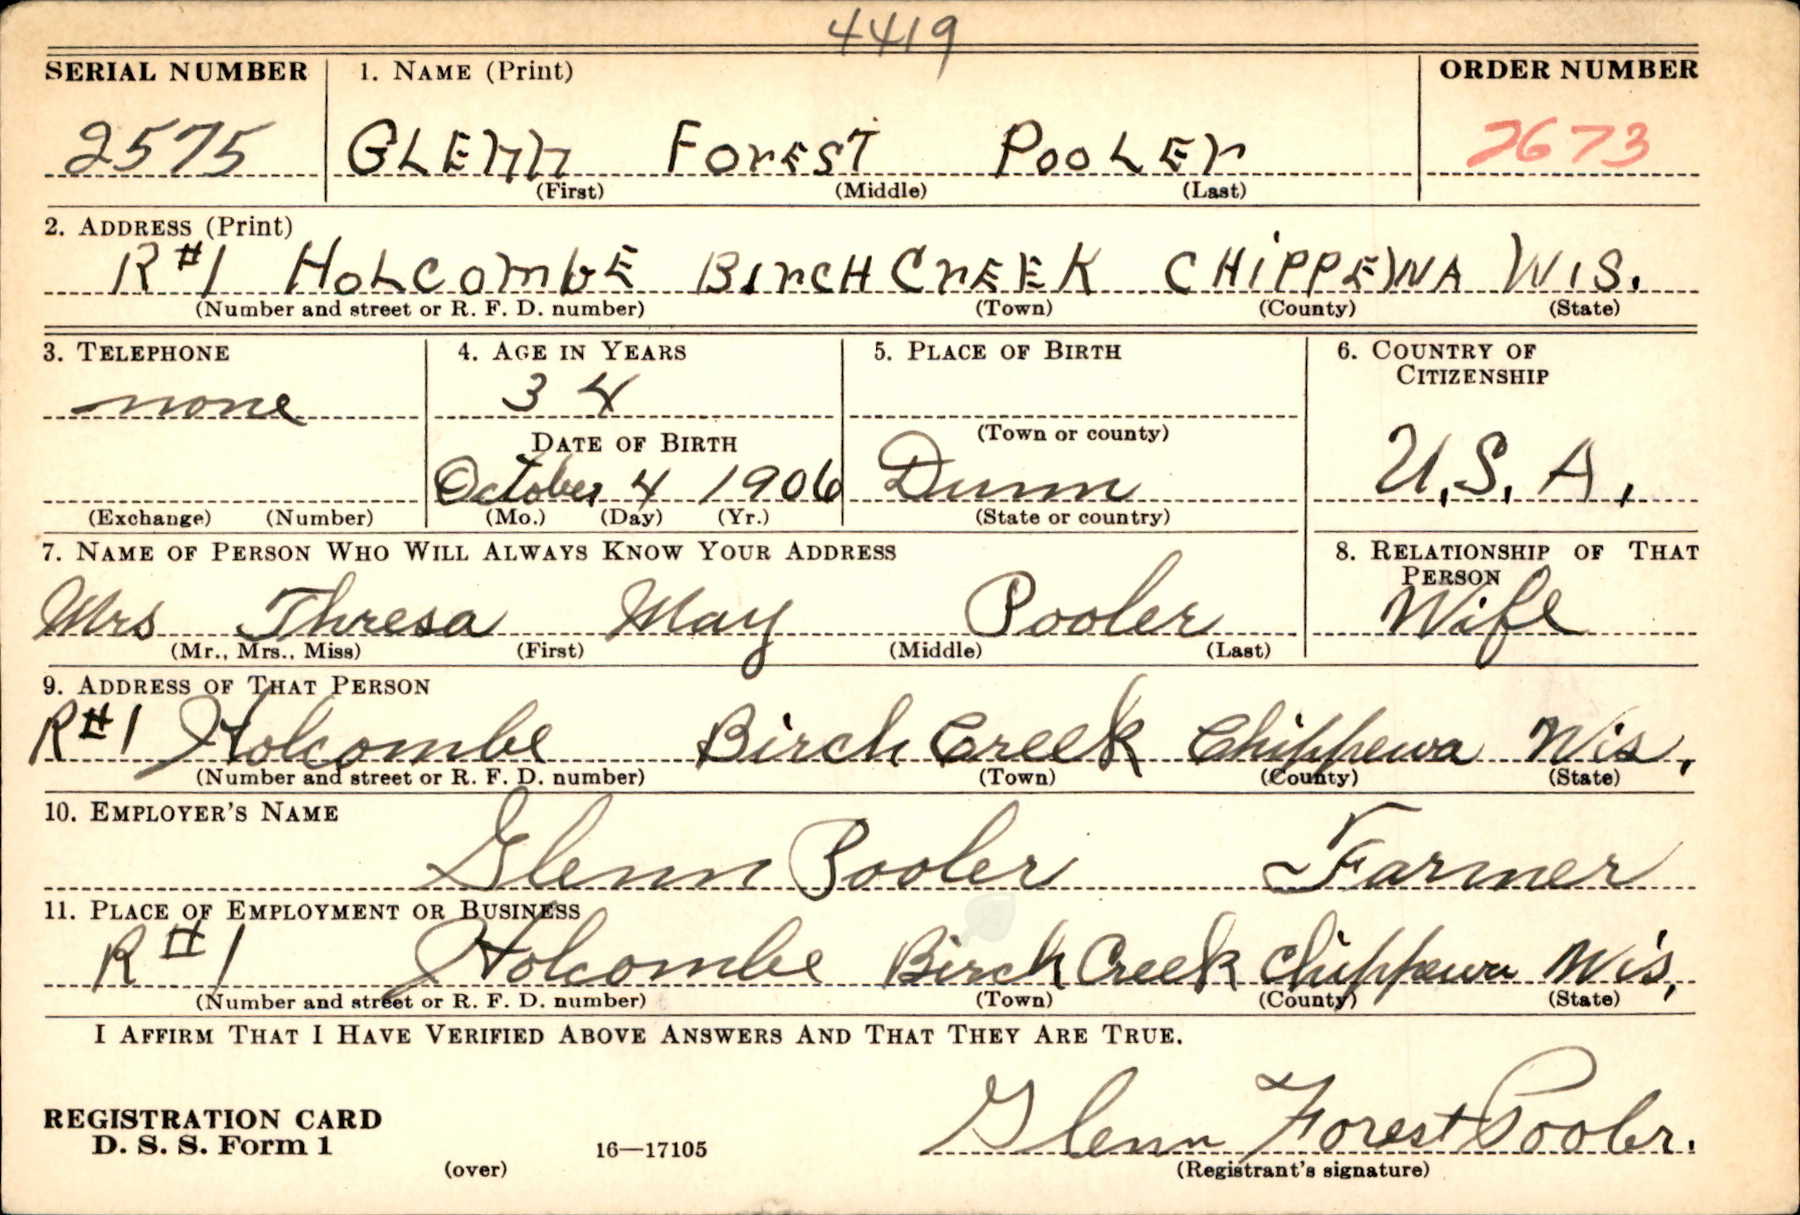 4419
SERIAL NUMBER 1. NAME (Print) ORDER NUMBER
2575 GLENN FOREST POOLER 2673
(First) (Middle) (Last)
2. ADDRESS (Print)
R#1 HOLCOMBE BIRCH CREEK CHIPPEWA WIS.
(Number and street or R. F. D. number) (Town) (County) (State)
3. TELEPHONE 4. AGE IN YEARS 5. PLACE OF BIRTH 6. COUNTRY OF CITIZENSHIP
none 34
(Town or county)
DATE OF BIRTH
October 4 1906 Dunn U.S.A.
(Exchange) (Number) (Mo.) (Day) (Yr.) (State or country)
7. NAME OF PERSON WHO WILL ALWAYS KNOW YOUR ADDRESS 8. RELATIONSHIP OF THAT PERSON
Mrs Thresa May Pooler Wife
(Mr., Mrs., Miss) (First) (Middle) (Last)
9. ADDRESS OF THAT PERSON
R#1 Holcombe Birch Creek Chippewa Wis.
(Number and street or R. F. D. number) (Town) (County) (State)
10. EMPLOYER'S NAME
Glenn Pooler Farmer
11. PLACE OF EMPLOYMENT OR BUSINESS
R#1 Holcombe Birch Creek Chippewa Wis.
(Number and street or R. F. D. number) (Town) (County) (State)
I AFFIRM THAT I HAVE VERIFIED ABOVE ANSWERS AND THAT THEY ARE TRUE.
Glenn Forest Pooler.
REGISTRATION CARD
D. S. S. Form 1 16—17105
(over) (Registrant's signature)